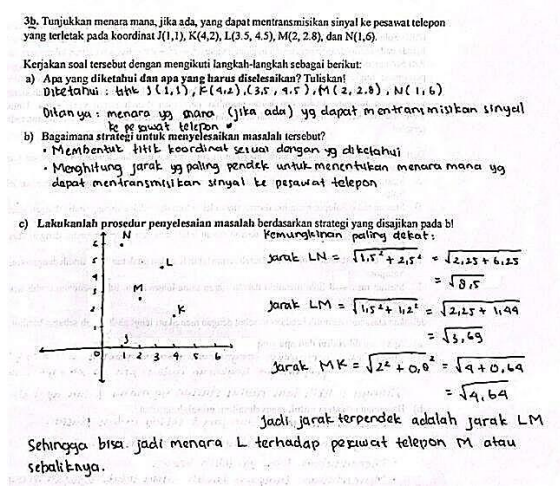 3b. Tunjukkan menara mana, jika ada, yang dapat mentransmisikan sinyal ke pesawat telepon
yang terletak pada koordinat J(1,1), K(4,2), L(3.5, 4.5), M(2, 2.8), dan N(1,6).
Kerjakan soal tersebut dengan mengikuti langkah-langkah sebagai berikut:
a) Apa yang diketahui dan apa yang harus diselesaikan? Tuliskan!
Diketahui : titik J (1,1), K(4,2), (3,5, 4,5), M(2, 2,8), N(1,6)
Ditanya : menara yg mana (jika ada) yg dapat mentransmisikan sinyal
ke pesawat telepon
b) Bagaimana strategi untuk menyelesaikan masalah tersebut?
• Membentuk titik koordinat sesuai dengan yg diketahui
• Menghitung jarak yg paling pendek untuk menentukan menara mana yg
dapat mentransmisikan sinyal ke pesawat telepon
c) Lakukanlah prosedur penyelesaian masalah berdasarkan strategi yang disajikan pada b!
Kemungkinan paling dekat:
Jarak LN = √1,5² + 2,5² = √2,25 + 6,25
= √8,5
Jarak LM = √1,5² + 1,2² = √2,25 + 1,44
= √3,69
Jarak MK = √2² + 0,8² = √4 + 0,64
= √4,64
N
L
M
K
J
6
5
4
3
2
1
0 1 2 3 4 5 6
Jadi, jarak terpendek adalah jarak LM
Sehingga bisa jadi menara L terhadap pesawat telepon M atau
sebaliknya.